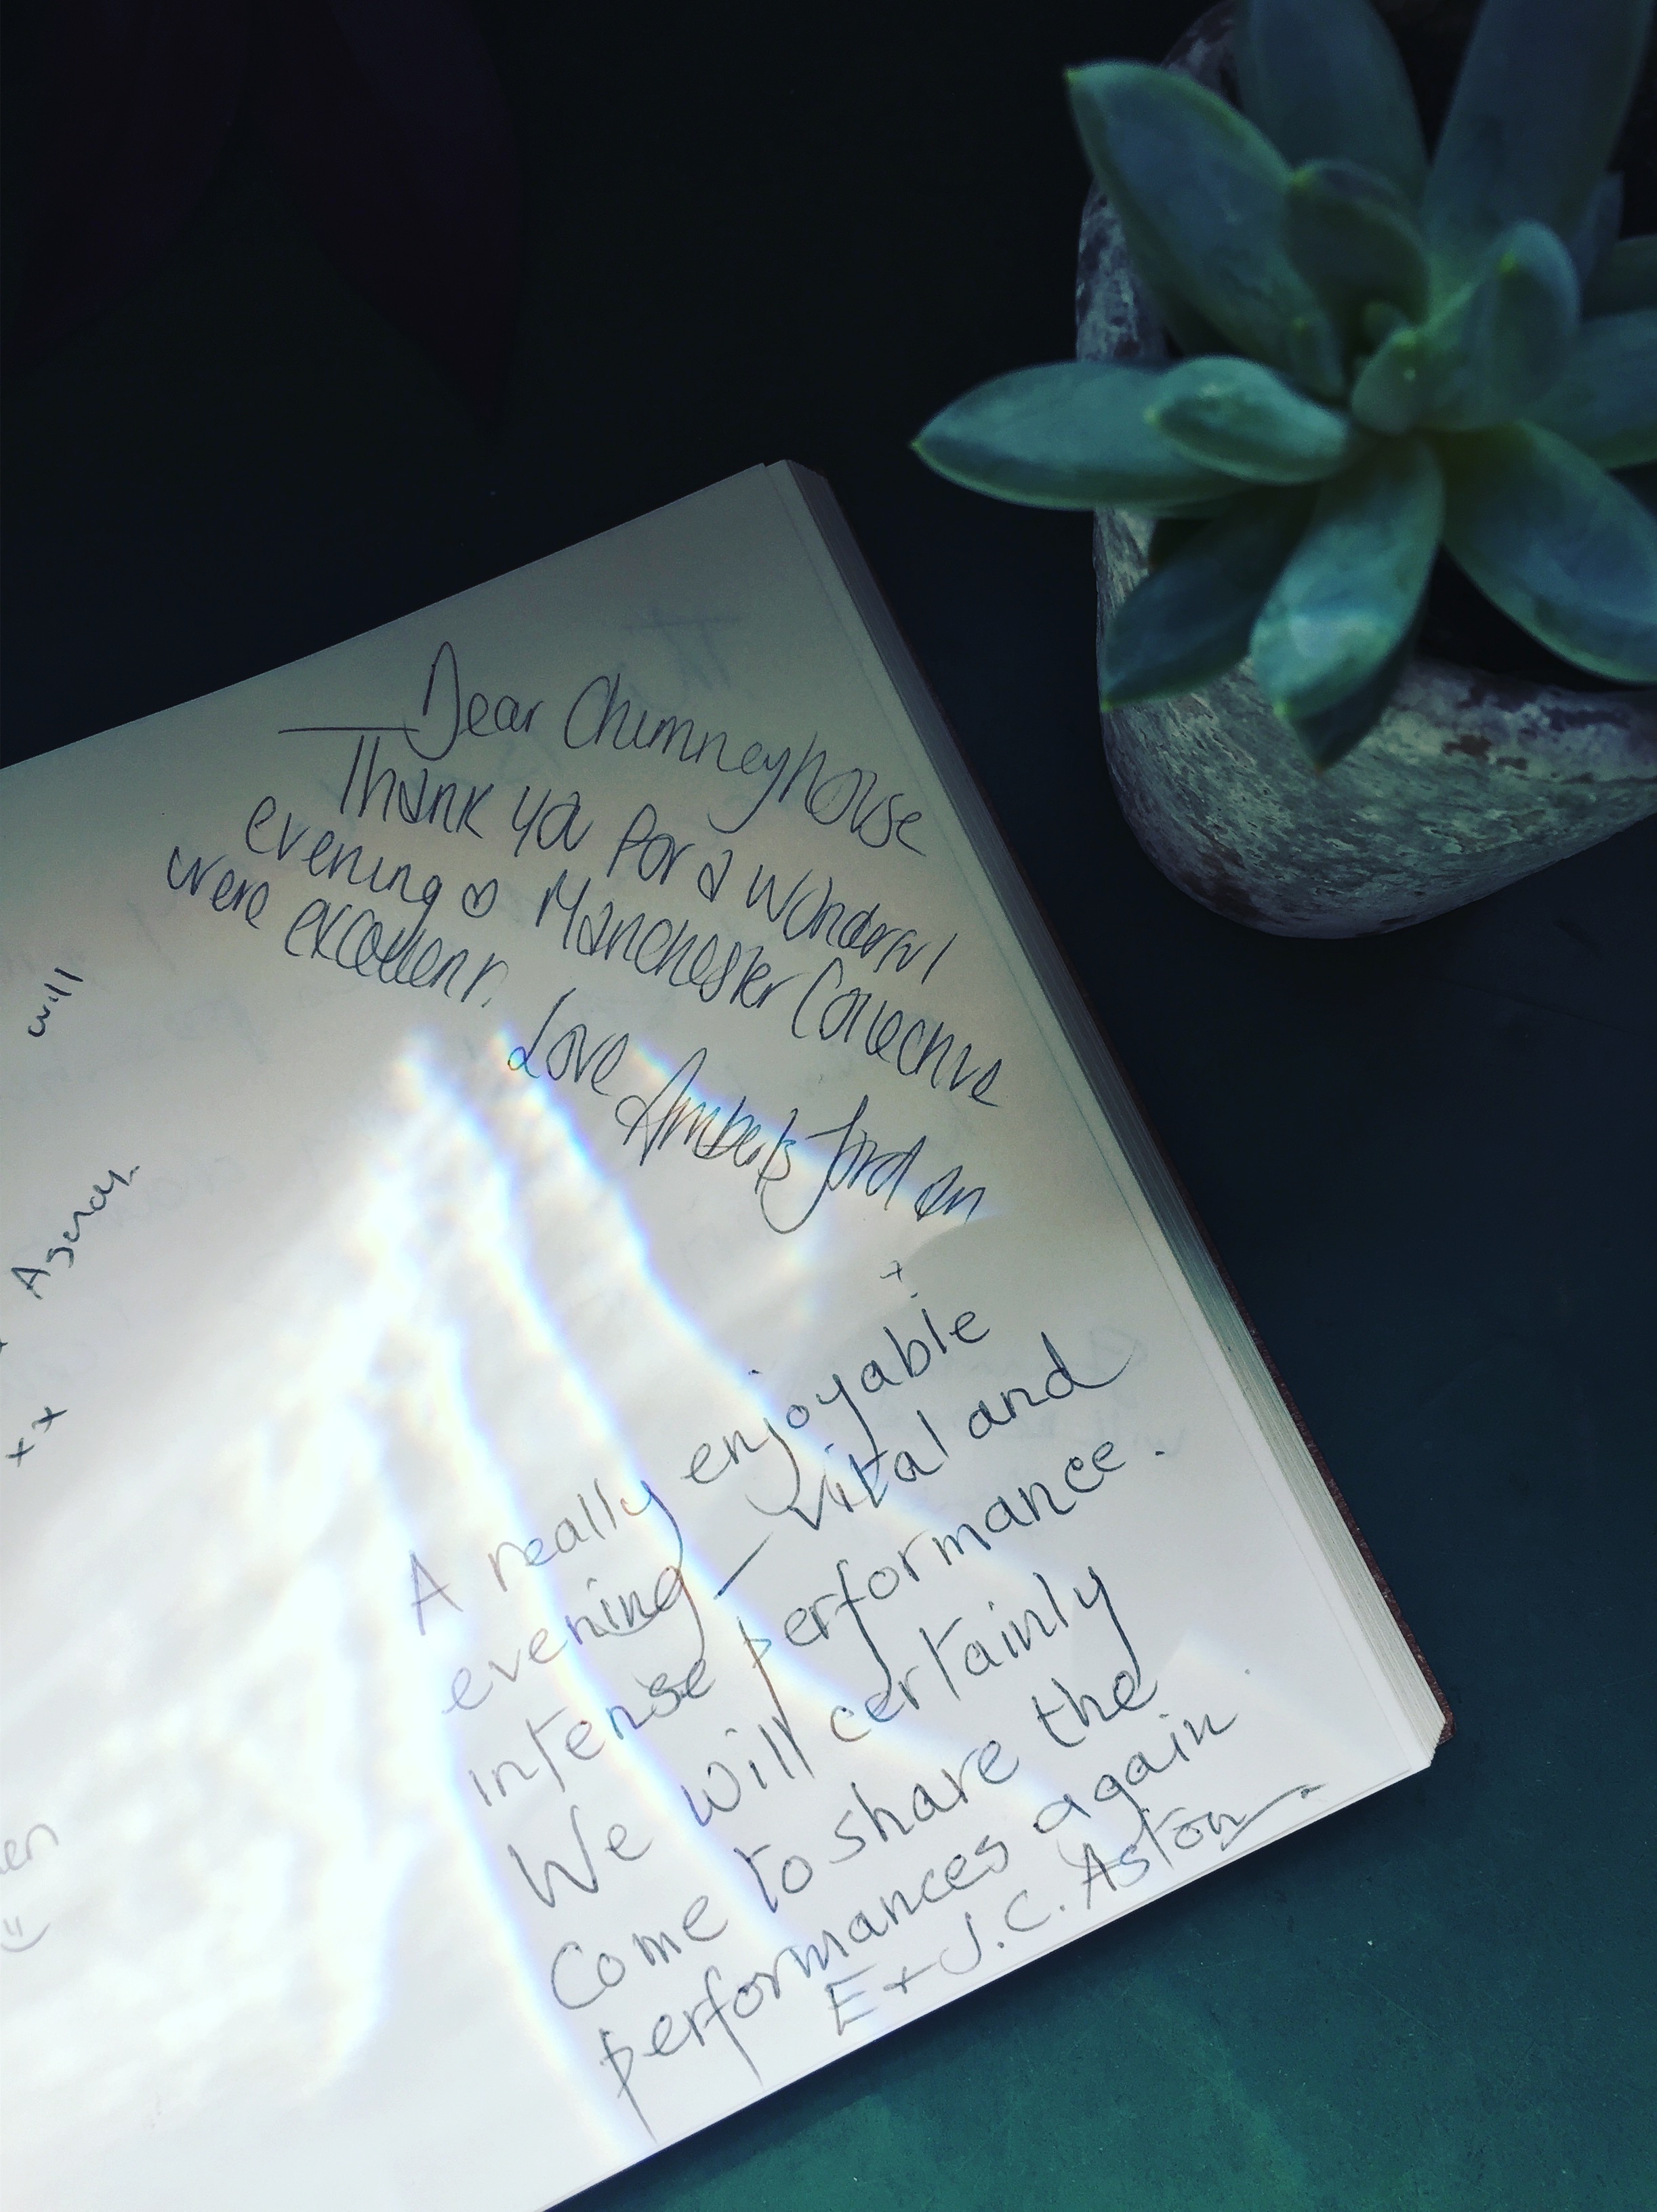 Dear Chimneyhouse
Thank you for a wonderful
evening ♡ Manchester Collective
were excellent. Love Amber & Jordan
x
A really enjoyable
evening – vital and
intense performance.
We will certainly
Come to share the
performances again
E + J.C. Aston
will
Agency
xx